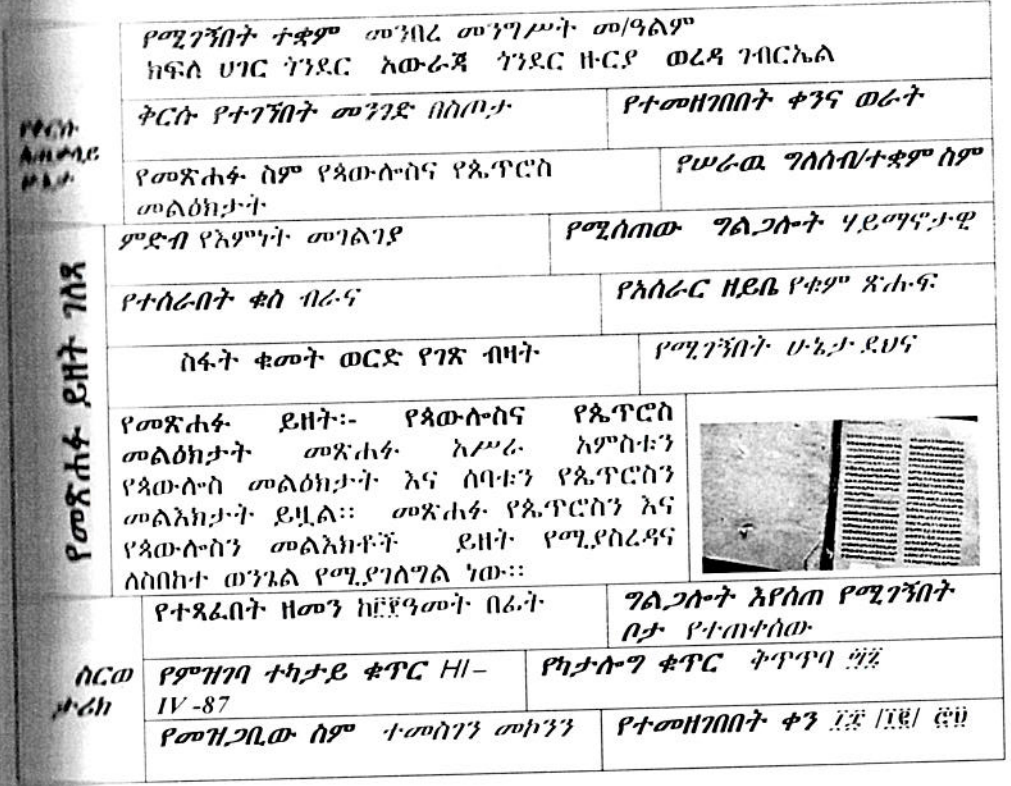 የሚገኝበት ተቋም መንበረ መንግሥት መ/ዓልም
ክፍለ ሀገር ጎንደር አውራጃ ጎንደር ዙርያ ወረዳ ገብርኤል
የቅርሱ
አጠቃላይ
ሁኔታ
ቅርሱ የተገኘበት መንገድ በስጦታ
የተመዘገበበት ቀንና ወራት
የመጽሐፉ ስም የጳውሎስና የጴጥሮስ
መልዕክታት
የሠራዉ ግለሰብ/ተቋም ስም
የመጽሐፉ ይዘት ገለጻ
ምድብ የእምነት መገልገያ
የሚሰጠው ግልጋሎት ሃይማኖታዊ
የተሰራበት ቁስ ብራና
የአሰራር ዘይቤ የቁም ጽሑፍ
ስፋት ቁመት ወርድ የገጽ ብዛት
የሚገኝበት ሁኔታ ደህና
የመጽሐፉ ይዘት፡- የጳውሎስና የጴጥሮስ
መልዕክታት መጽሐፉ አሥራ አምስቱን
የጳውሎስ መልዕክታት እና ሰባቱን የጴጥሮስን
መልእክታት ይዟል። መጽሐፉ የጴጥሮስን እና
የጳውሎስን መልእክቶች ይዘት የሚያስረዳና
ለስበከተ ወንጌል የሚያገለግል ነው።
ስርወ
ታሪክ
የተጻፈበት ዘመን ዓመት በፊት
ግልጋሎት እየሰጠ የሚገኝበት
ቦታ የተጠቀሰው
የምዝገባ ተካታይ ቁጥር HI–
IV -87
የካታሎግ ቁጥር ቅጥጥባ
የመዝጋቢው ስም ተመስገን መኮንን
የተመዘገበበት ቀን